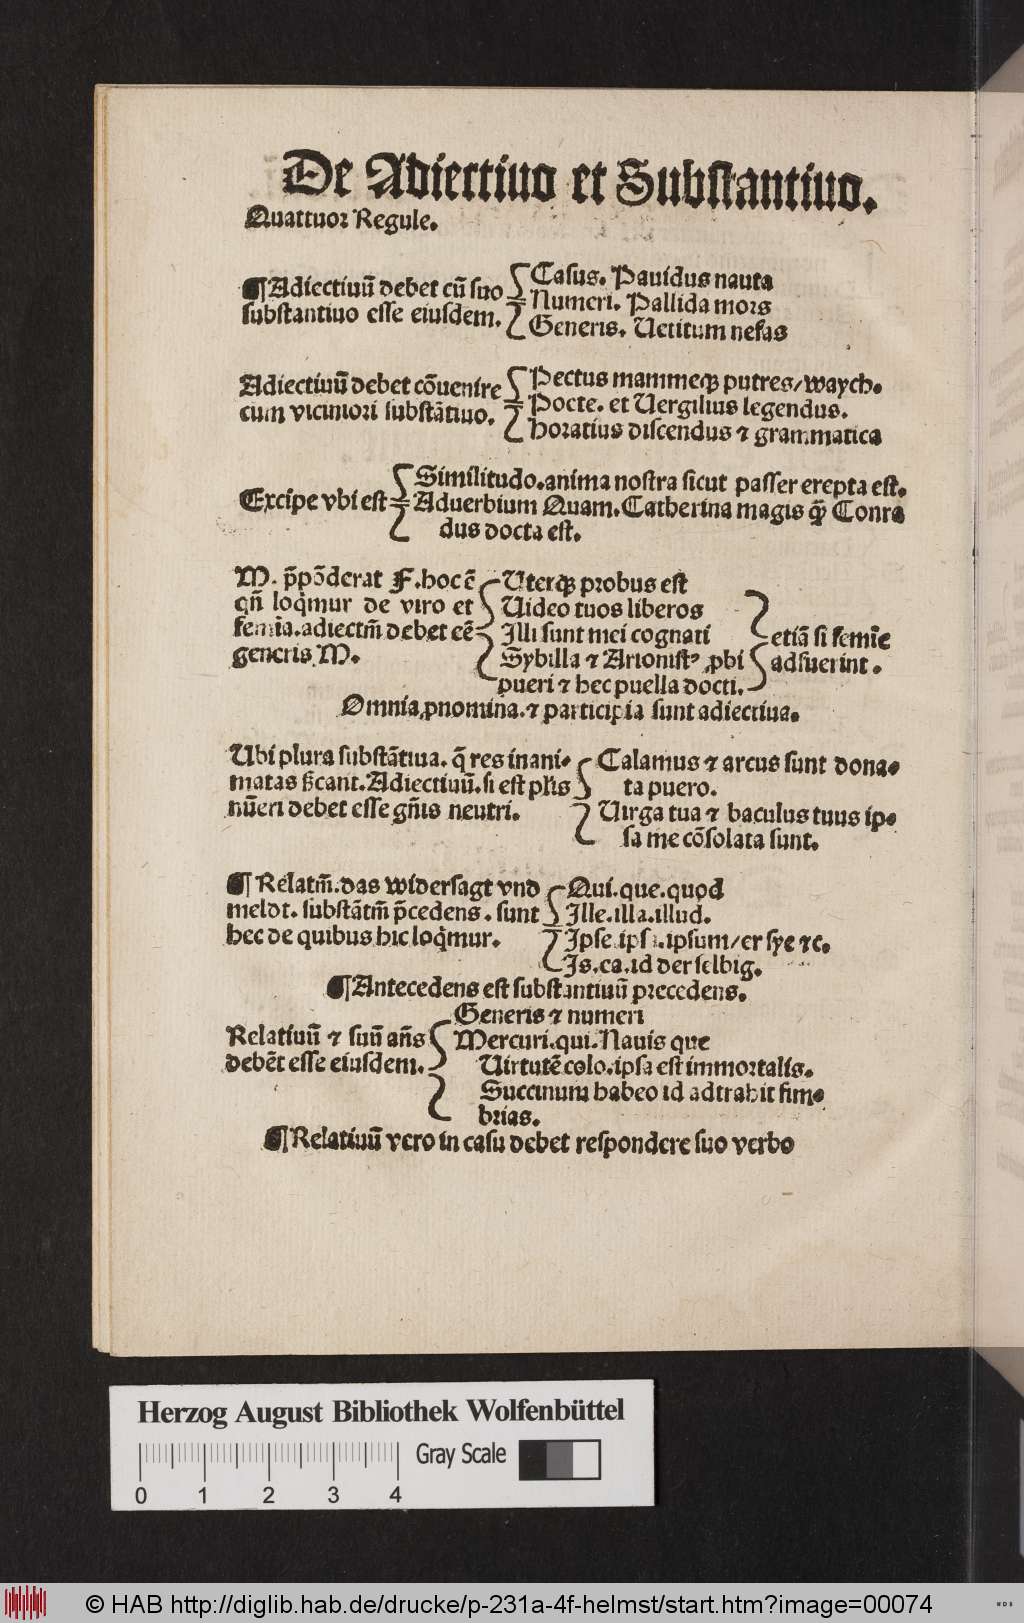 De Adiectiuo et Substantiuo.
Quattuor Regule.
¶ Adiectiuū debet cū suo
substantiuo esse eiusdem.
Casus. Pauidus nauta
Numeri. Pallida mors
Generis. Uetitum nefas
Adiectiuū debet cōuenire
cum viciniori substātiuo.
Pectus mammeqꝫ putres/waych.
Poete. et Uergilius legendus.
Horatius discendus ⁊ grammatica
Excipe vbi est
Similitudo. anima nostra sicut passer erepta est.
Aduerbium Quam. Catherina magis q̄ꝫ Conra
dus docta est.
M. p̄pōderat F. hoc ē
qn̄ loq̄mur de viro et
femīa. adiectm̄ debet eē
generis M.
Uterqꝫ probus est
Uideo tuos liberos
Illi sunt mei cognati
Sybilla ⁊ Arionistꝰ ꝓbi
pueri ⁊ hec puella docti.
etiā si femīe
adfuerint.
Omnia ꝓnomina. ⁊ participia sunt adiectiua.
Ubi plura substātiua. q̄ res inani-
matas sc̄ant. Adiectiuū. si est pl̄is
nūeri debet esse gn̄is neutri.
Calamus ⁊ arcus sunt dona-
ta puero.
Uirga tua ⁊ baculus tuus ip-
sa me cōsolata sunt.
¶ Relatm̄. das widersagt vnd
meldt. substātm̄ p̄cedens. sunt
hec de quibus hic loq̄mur.
Qui. que. quod
Ille. illa. illud.
Ipse ipsa. ipsum/er sye ⁊c.
Is. ea. id der selbig.
¶ Antecedens est substantiuū precedens.
Relatiuū ⁊ suū an̄s
debēt esse eiusdem.
Generis ⁊ numeri
Mercuri. qui. Nauis que
Uirtutē colo. ipsa est immortalis.
Succinum habeo id adtrahit fim-
brias.
¶ Relatiuū vero in casu debet respondere suo verbo
Herzog August Bibliothek Wolfenbüttel
Gray Scale
0 1 2 3 4
© HAB http://diglib.hab.de/drucke/p-231a-4f-helmst/start.htm?image=00074